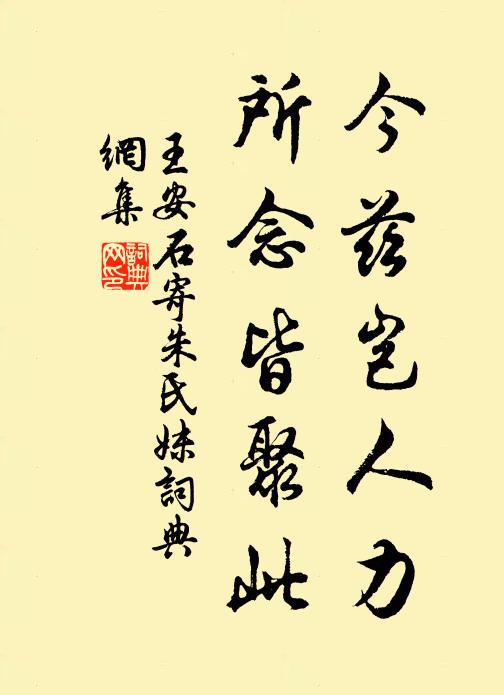 今茲豈人力
所念皆聚此
王安石寄朱氏妹詞典
網集
詞典
网印